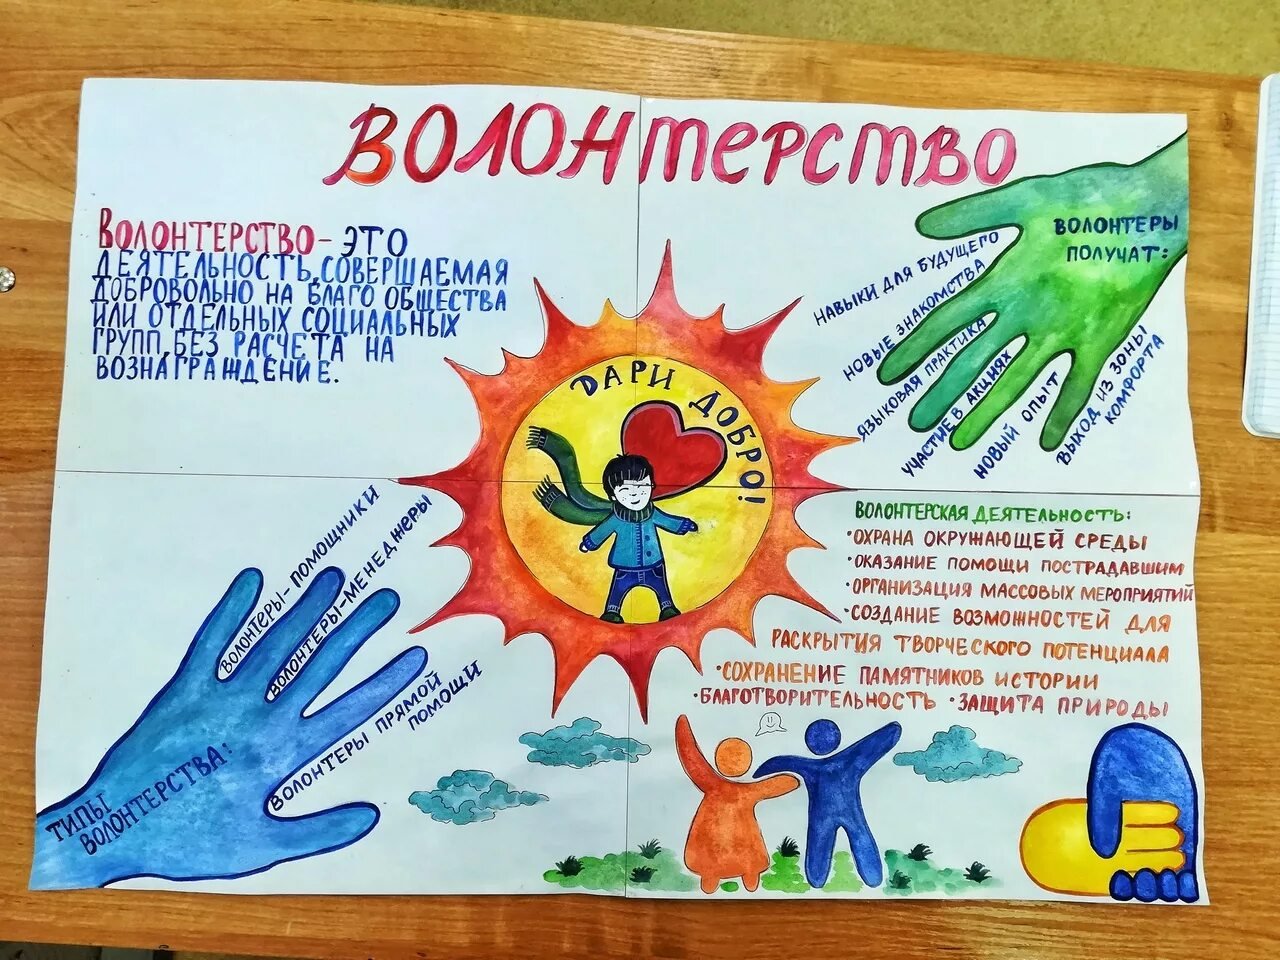 ВОЛОНТЕРСТВО
ВОЛОНТЕРСТВО - ЭТО
ДЕЯТЕЛЬНОСТЬ, СОВЕРШАЕМАЯ
ДОБРОВОЛЬНО НА БЛАГО ОБЩЕСТВА
ИЛИ ОТДЕЛЬНЫХ СОЦИАЛЬНЫХ
ГРУПП, БЕЗ РАСЧЕТА НА
ВОЗНАГРАЖДЕНИЕ.
ВОЛОНТЕРЫ
ПОЛУЧАТ:
НАВЫКИ ДЛЯ БУДУЩЕГО
НОВЫЕ ЗНАКОМСТВА
ЯЗЫКОВАЯ ПРАКТИКА
УЧАСТИЕ В АКЦИЯХ
НОВЫЙ ОПЫТ
ВЫХОД ИЗ ЗОНЫ
КОМФОРТА
ДАРИ ДОБРО!
ТИПЫ
ВОЛОНТЕРСТВА:
ВОЛОНТЕРЫ-ПОМОЩНИКИ
ВОЛОНТЕРЫ-МЕНЕДЖЕРЫ
ВОЛОНТЕРЫ ПРЯМОЙ
ПОМОЩИ
ВОЛОНТЕРСКАЯ ДЕЯТЕЛЬНОСТЬ:
•ОХРАНА ОКРУЖАЮЩЕЙ СРЕДЫ
•ОКАЗАНИЕ ПОМОЩИ ПОСТРАДАВШИМ
•ОРГАНИЗАЦИЯ МАССОВЫХ МЕРОПРИЯТИЙ
•СОЗДАНИЕ ВОЗМОЖНОСТЕЙ ДЛЯ
РАСКРЫТИЯ ТВОРЧЕСКОГО ПОТЕНЦИАЛА
•СОХРАНЕНИЕ ПАМЯТНИКОВ ИСТОРИИ
•БЛАГОТВОРИТЕЛЬНОСТЬ •ЗАЩИТА ПРИРОДЫ